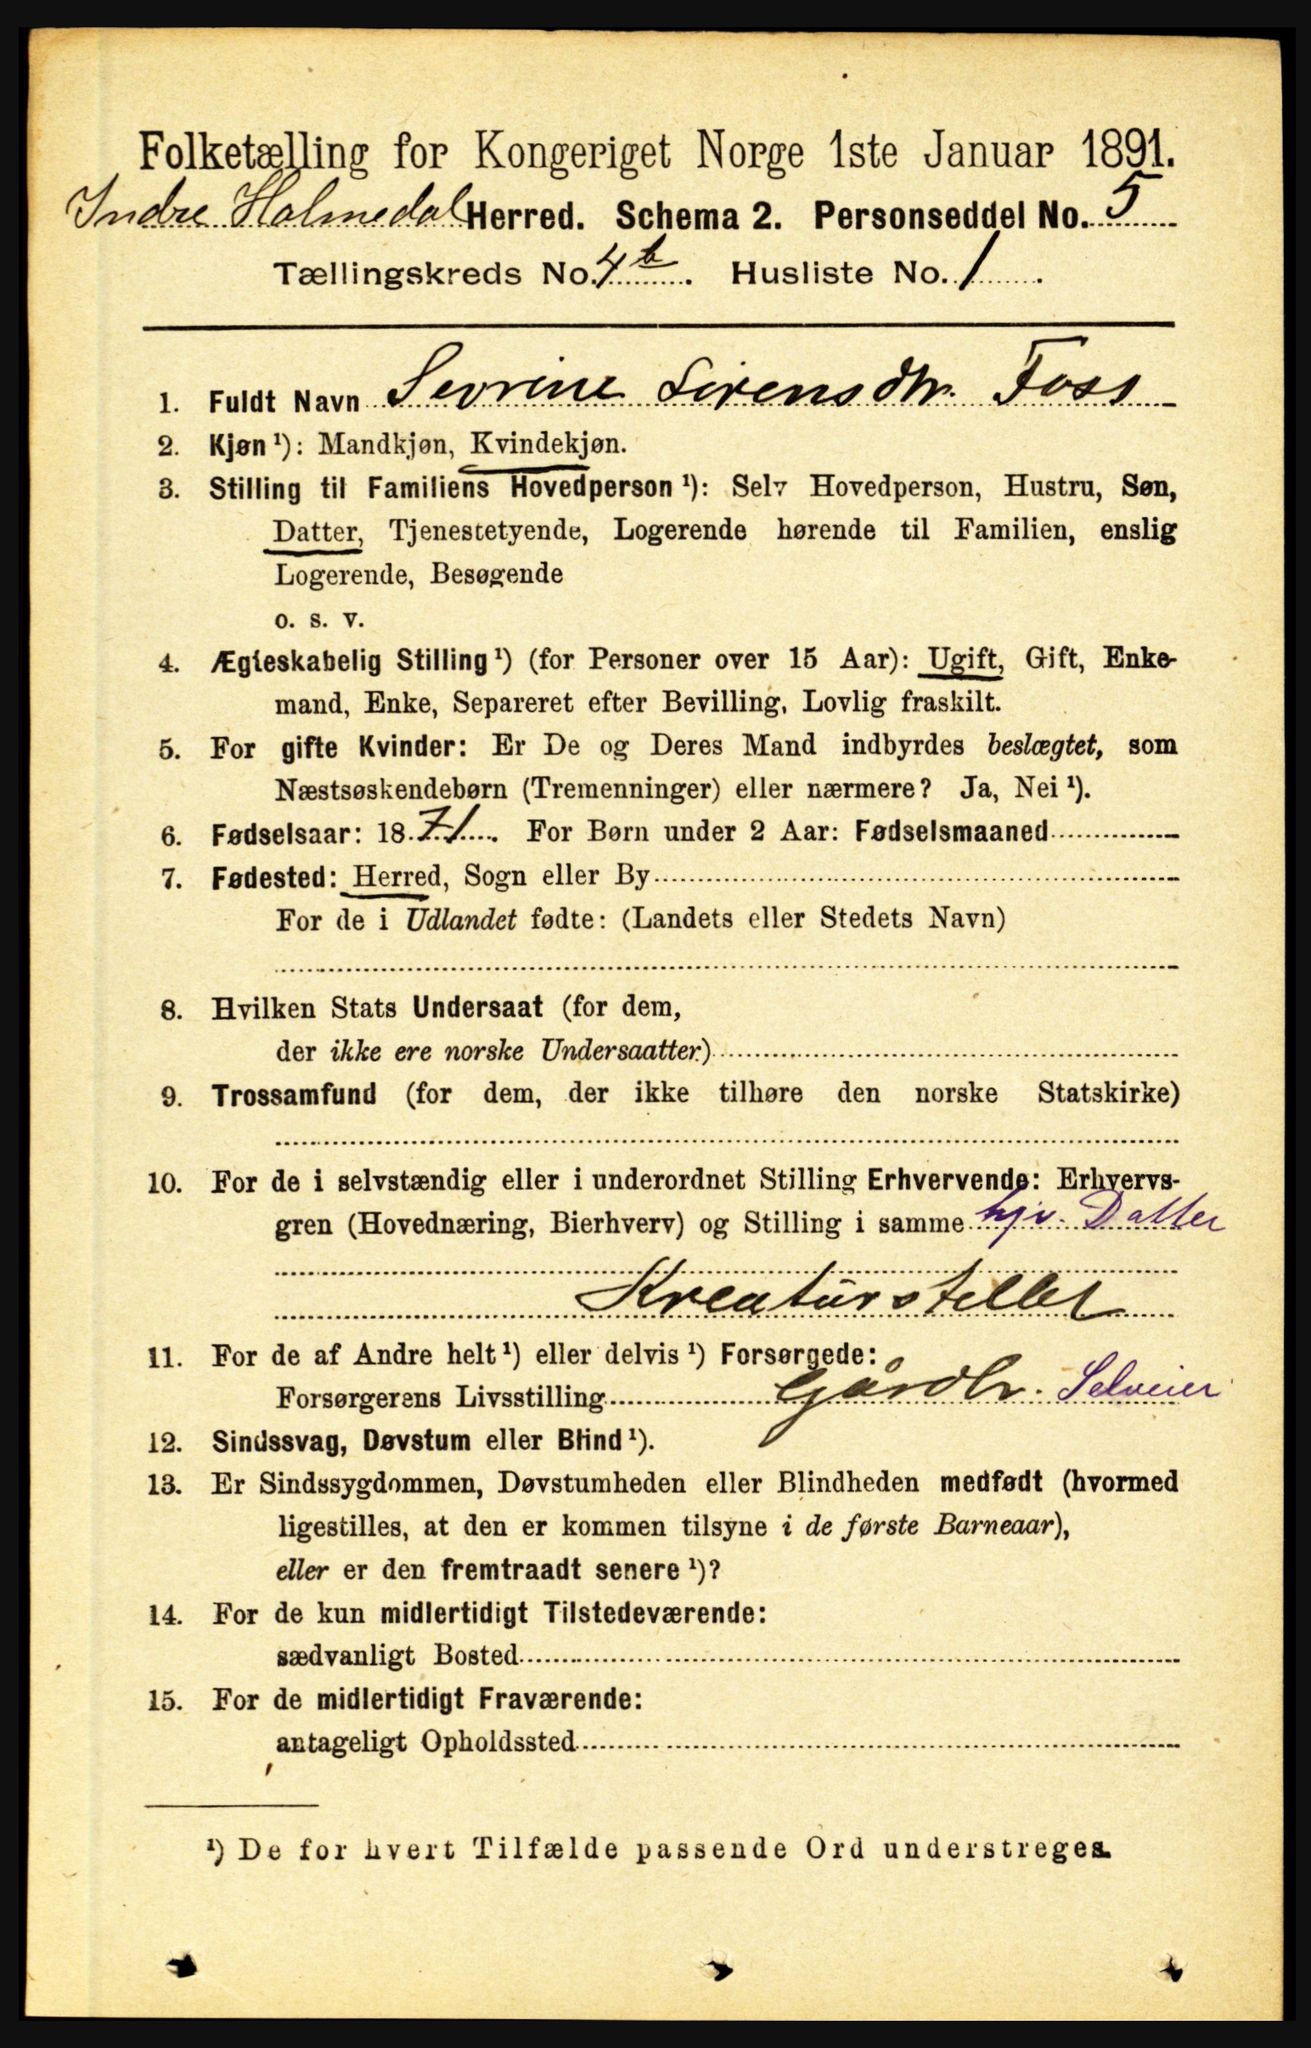 Folketælling for Kongeriget Norge 1ste Januar 1891.
Indre Holmedal Herred. Schema 2. Personseddel No. 5
Tællingskreds No. 4b. Husliste No. 1.
1. Fuldt Navn Sevrine Sirensdtr. Foss
2. Kjøn ¹): Mandkjøn, Kvindekjøn.
3. Stilling til Familiens Hovedperson ¹): Selv Hovedperson, Hustru, Søn,
Datter, Tjenestetyende, Logerende hørende til Familien, enslig
Logerende, Besøgende
o. s. v.
4. Ægteskabelig Stilling ¹) (for Personer over 15 Aar): Ugift, Gift, Enke-
mand, Enke, Separeret efter Bevilling, Lovlig fraskilt.
5. For gifte Kvinder: Er De og Deres Mand indbyrdes beslægtet, som
Næstsøskendebørn (Tremenninger) eller nærmere? Ja, Nei ¹).
6. Fødselsaar: 1871. For Børn under 2 Aar: Fødselsmaaned
7. Fødested: Herred, Sogn eller By
For de i Udlandet fødte: (Landets eller Stedets Navn)
8. Hvilken Stats Undersaat (for dem,
der ikke ere norske Undersaatter)
9. Trossamfund (for dem, der ikke tilhøre den norske Statskirke)
10. For de i selvstændig eller i underordnet Stilling Erhvervende: Erhvervs-
gren (Hovednæring, Bierhverv) og Stilling i samme hjv. Datter
Kreaturstellet
11. For de af Andre helt ¹) eller delvis ¹) Forsørgede:
Forsørgerens Livsstilling Gårdbr. Selveier
12. Sindssvag, Døvstum eller Blind ¹).
13. Er Sindssygdommen, Døvstumheden eller Blindheden medfødt (hvormed
ligestilles, at den er kommen tilsyne i de første Barneaar),
eller er den fremtraadt senere ¹)?
14. For de kun midlertidigt Tilstedeværende:
sædvanligt Bosted
15. For de midlertidigt Fraværende:
antageligt Opholdssted
¹) De for hvert Tilfælde passende Ord understreges.